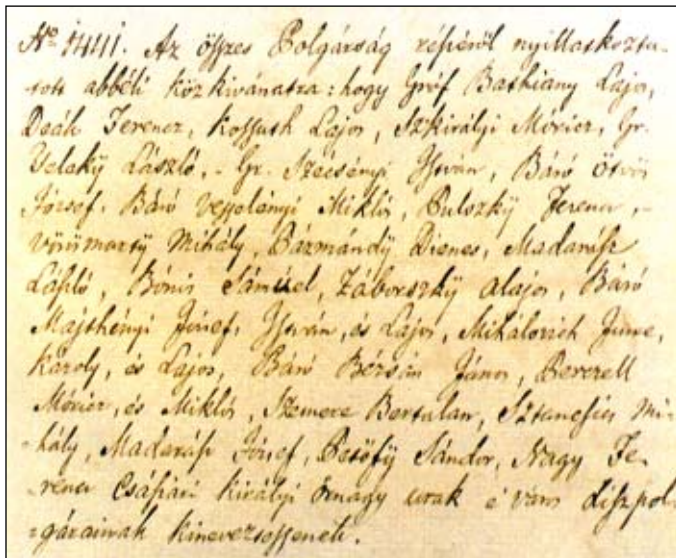 No 1441. Az összes Polgárság részéről nyillatkozta-
tott abbéli közkivánatra: hogy Gróf Bathiany Lajos,
Deák Ferencz, Kossuth Lajos, Szkirályi Móricz, Gr.
Teleky László, - Gr. Szécsényi István, Báró Ötvös
József. Báró Vesselényi Miklós, Pulszky Ferencz, -
Vörösmarty Mihály, Pázmándy Dienes, Madarász
László, Bónis Sámuel, Záborszky Alajos, Báró
Majthényi József, István, és Lajos, Mihálovich
Károly, és Lajos, Báró Bézsán János, Perczell
Móricz, és Miklós, Szemere Bertalan, Sztanesics Mi-
-hály, Madarász József, Petöfy Sándor, Nagy Fe-
-rencz Császári Királyi örnagy urak e város diszpol-
-gárainak kineveztessenek.